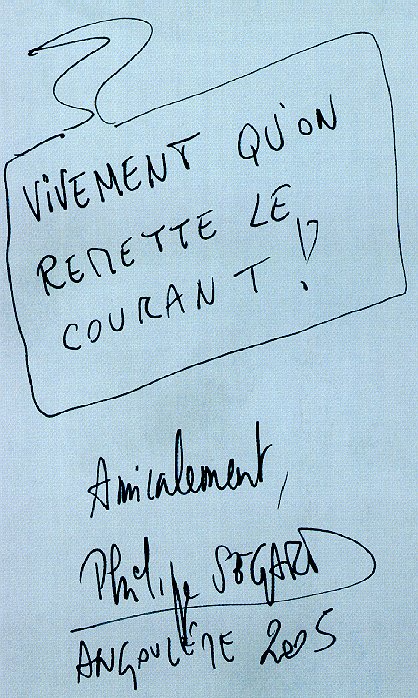 VIVEMENT QU'ON
REMETTE LE
COURANT !
Amicalement,
Philippe SEGARD
ANGOULÊME 2005